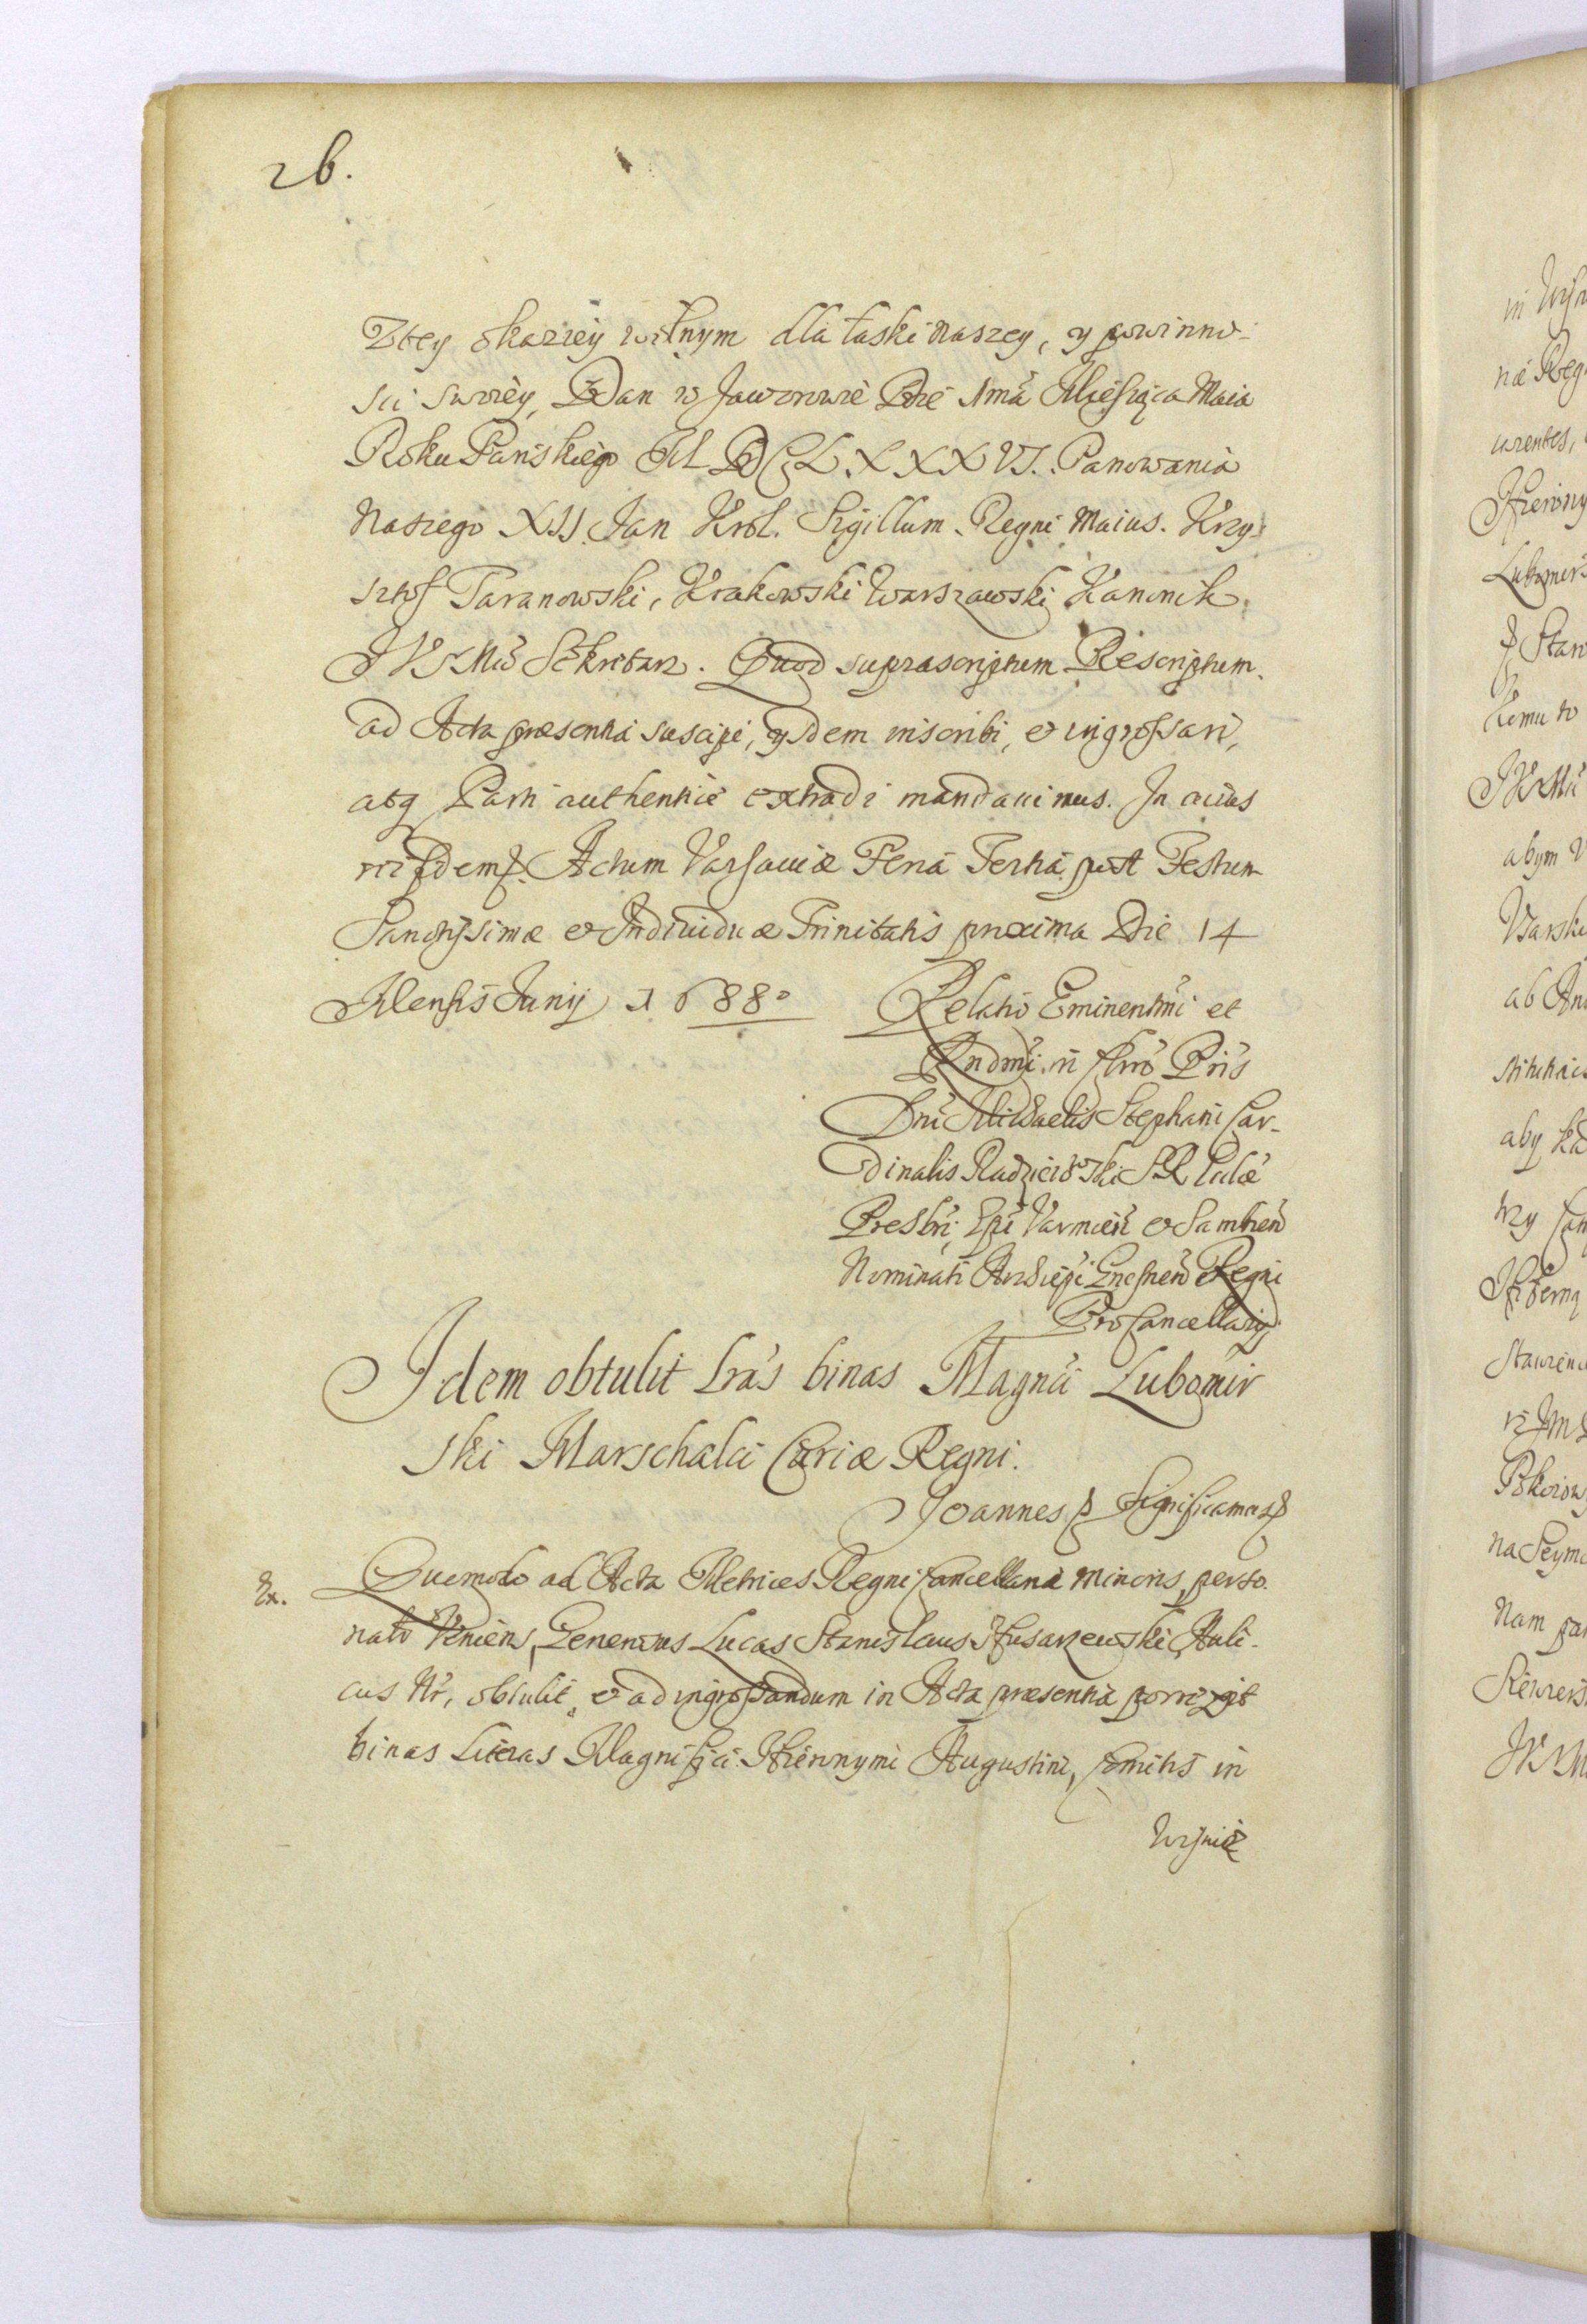 26.
Ztey okaziey wolnym dla łaski naszey, y powinno-
sci swoiey, Dan w Jaworowie Die 1ma Miesiąca Maia
Roku Pańskiego MDCLXXXVI. Panowania
Naszego XII Jan Krol. Sigillum Regni Maius. Krzy-
sztof Taranowski, Krakowski Warszawski Kanonik
JKMci Sekretarz. Quod suprascriptum Rescriptum
ad Acta præsentia suscipi, ijsdem inscribi, et ingrossari,
atq Parti authentice extradi mandavimus. In cuius
rei fidem Actum Varsaviæ Feria Tertia post Festum
Sanctissimæ et Individuæ Trinitatis proxima Die 14
Mensis Junij 1688o
Relatio Eminentmi et
Rndmi in Chro Pris
Dni Michaelis Stephani Car-
dinalis Radzieiowski SR Eccla
Presbri, Epi Varmien et Sambien
Nominati Archiepi Gnesnen Regni
ProCancellarij
Idem obtulit Lras binas Magnci Lubomir
ski Marschalci Curiæ Regni.
Joannes Significamus
Ex.
Quomodo ad Acta Metrices Regni Cancellariæ Minoris perso-
naliter Veniens Generosus Lucas Stanislaus Husarzewski Auli-
cus Nr, obtulit, et ad ingrossandum in Acta præsentia porrexit
binas Literas Magnifici Hieronymi Augustini, Comitis in
Wiśnicz